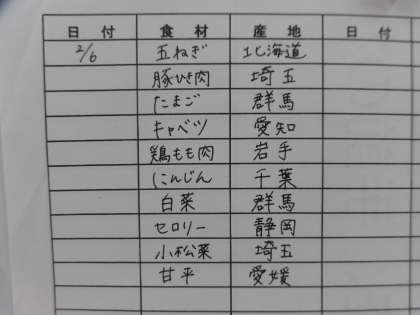 日 付 食 材 産 地 日 付
2/6 五ねぎ 北海道
豚ひき肉 埼玉
たまご 群馬
キャベツ 愛知
鶏もも肉 岩手
にんじん 千葉
白菜 群馬
セロリー 静岡
小松菜 埼玉
甘平 愛媛